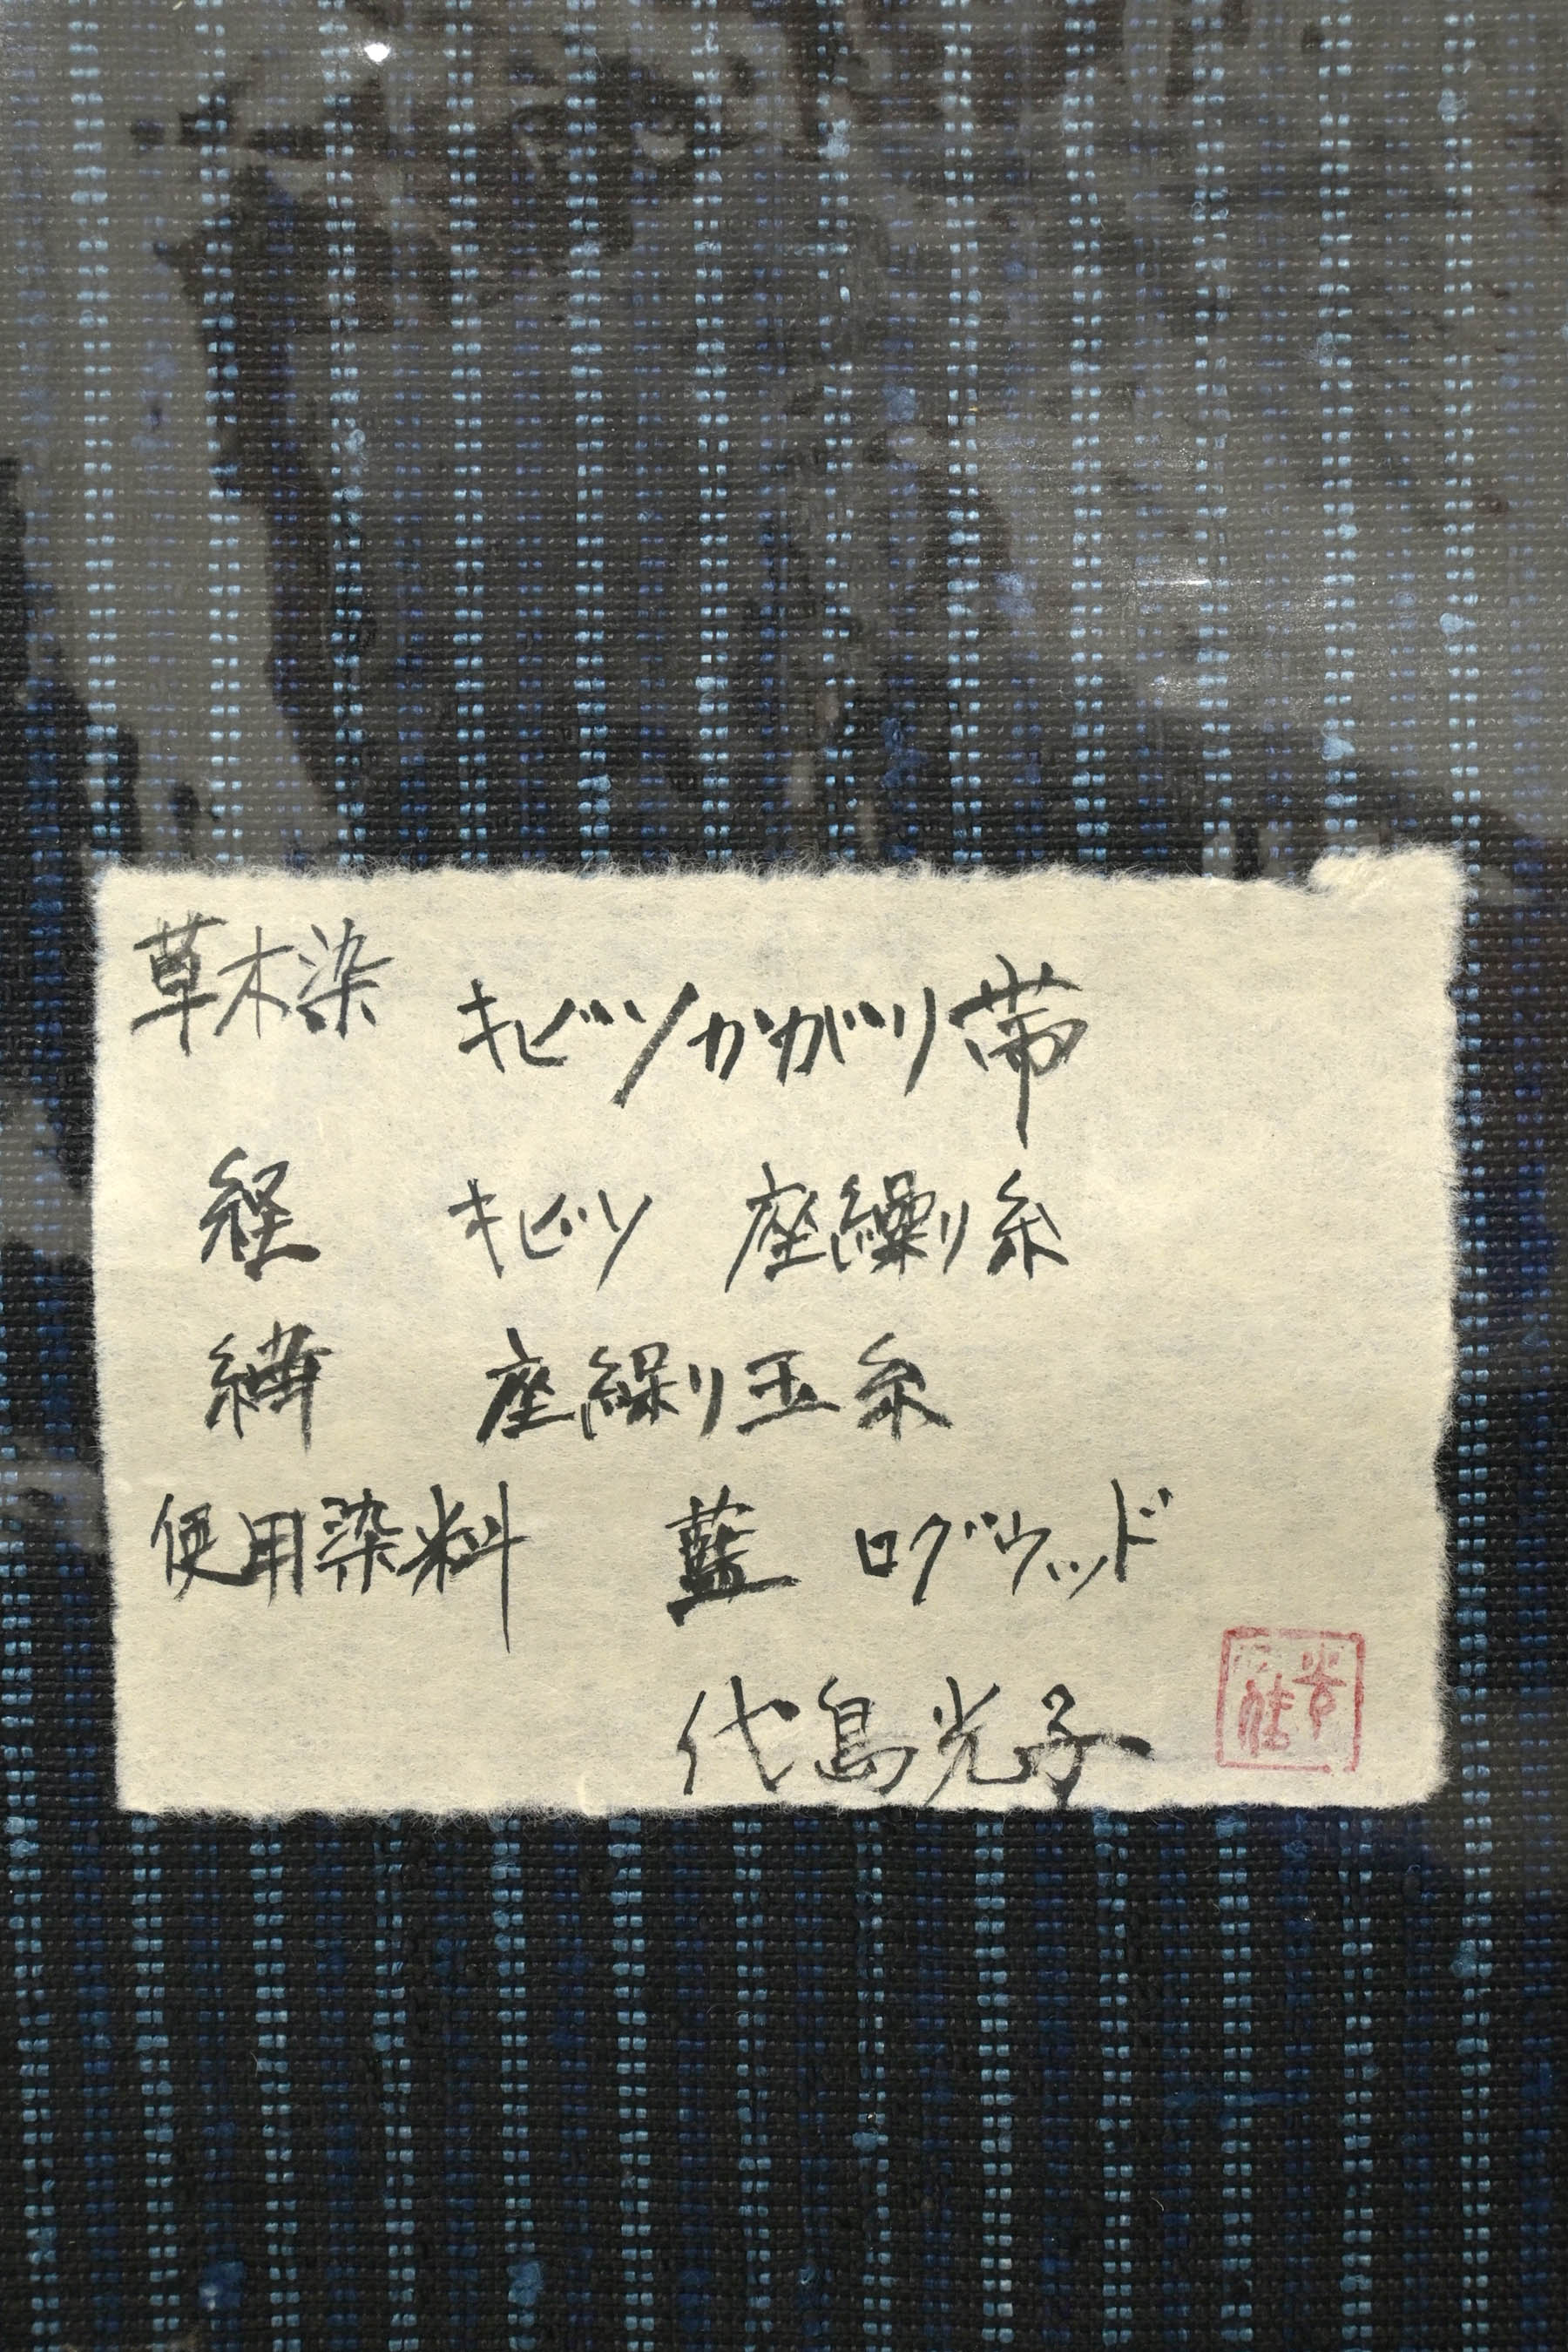 草木染 キビソかがり帯
経 キビソ 座繰り糸
緯 座繰り玉糸
使用染料 藍 ログウッド
代島光子